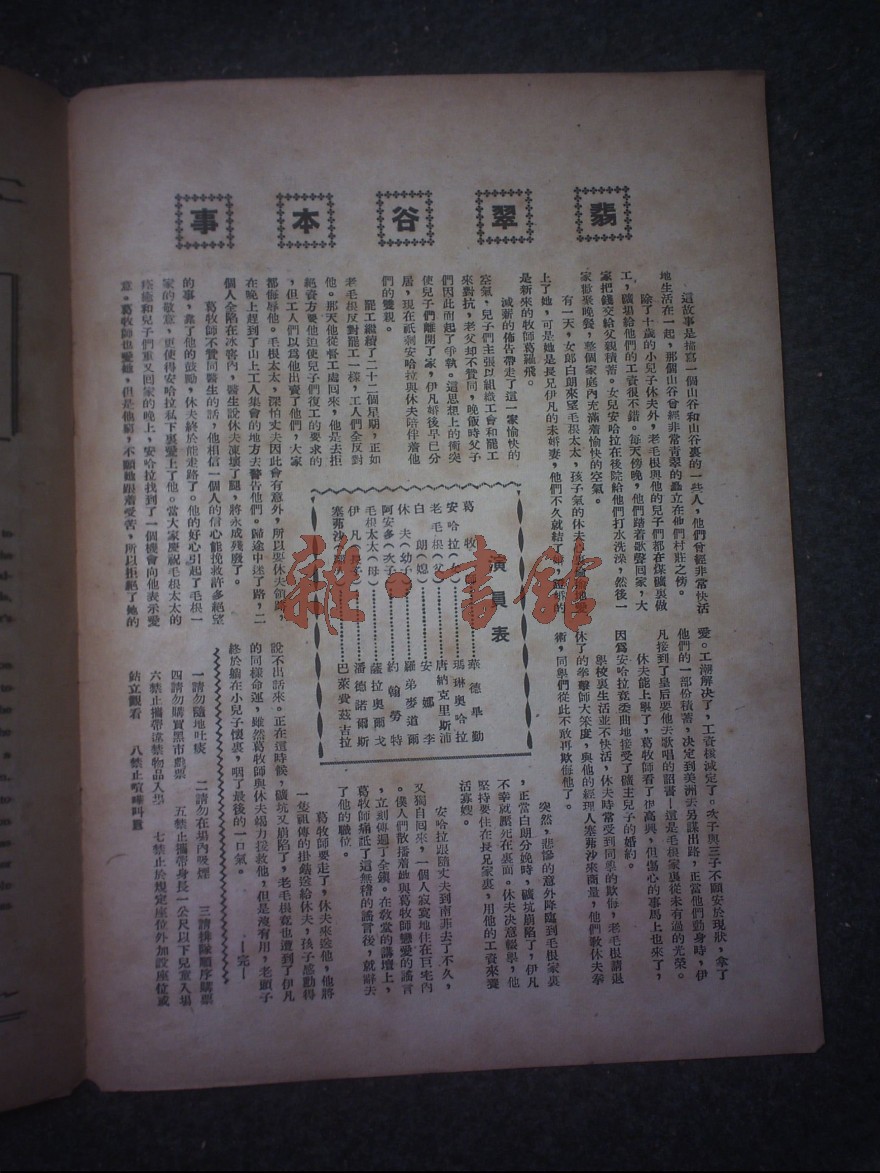 翡翠谷本事
這故事是描寫一個山谷和山谷裏的一些人，他們曾經非常快活
地生活在一起，那個山谷曾經非常青翠的矗立在他們村莊之傍。
除了十歲的小兒子休夫外，老毛根與他的兒子們都在煤礦裏做
工，礦場給他們的工資很不錯。每天傍晚，他們踏着歌聲回家，大
家把錢交給父親積蓄。女兒安哈拉在後院給他們打水洗澡，然後一
家歡聚晚餐，整個家庭內充滿着愉快的空氣。
有一天，女郎白朗來望毛根太太，孩子氣的休夫
上了她，可是她是長兄伊凡的未婚妻，他們不久就結了婚，證婚的
是新來的牧師葛羅飛。
減薪的佈告帶走了這一家愉快的
空氣，兒子們主張以組織工會和罷工
來對抗，老父却不贊同，晚飯時父子
們因此而起了爭執。這思想上的衝突
使兒子們離開了家，伊凡婚後早已分
居，現在祇剩安哈拉與休夫陪伴着他
們的雙親。
罷工繼續了二十二個星期，正如
老毛根反對罷工一樣，工人們全反對
他。那天他從督工處回來，他是去拒
絕資方要他迫使兒子們復工的要求的
，但工人們以爲他出賣了他們，大家
都侮辱他。毛根太太，深怕丈夫因此會有意外，所以要休夫領路，
在晚上趕到了山上工人集會的地方去警告他們。歸途中迷了路，二
個人全陷在冰窖內，醫生說休夫凍壞了腿，將永成殘廢了。
葛牧師不贊同醫生的話，他相信一個人的信心能挽救許多絕望
的事，靠了他的鼓勵，休夫終於能走路了。他的好心引起了毛根一
家的敬意，更使得安哈拉私下裏愛上了他。當大家慶祝毛根太太的
痊癒和兒子們重又回家的晚上，安哈拉找到了一個機會向他表示愛
意。葛牧師也愛她，但是他窮，不願她跟着受苦，所以拒絕了她的
愛。工潮解決了，工資核減定了。次子與三子不願安於現狀，拿了
他們的一部份積蓄，決定到美洲去另謀出路，正當他們動身時，伊
凡接到了皇后要他去歌唱的詔書—這是毛根家裏從未有過的光榮。
休夫能上學了，葛牧師看了很高興，但傷心的事馬上也來了，
因爲安哈拉竟委曲地接受了礦主兒子的婚約。
學校裏生活並不快活，休夫時常受到同學的欺侮，老毛根請退
休了的拳擊師大笨度，與他的經理人塞茀沙來商量，他們教休夫拳
術，同學們從此不敢再欺侮他了。
突然，悲慘的意外降臨到毛根家裏
，正當白朗分娩時，礦坑崩陷了，伊凡
不幸就壓死在裏面。休夫決意輟學，他
堅持要住在長兄家裏，用他的工資來養
活寡嫂。
安哈拉跟隨丈夫到南非去了不久，
又獨自回來，一個人寂寞地住在巨宅內
。僕人們散播着她與葛牧師戀愛的謠言
，立刻傳遍了全鎮。在敎堂的講壇上，
葛牧師痛詆了這無稽的謠言後，就辭去
了他的職位。
葛牧師要走了，休夫來送他，他將
一隻祖傳的掛錶送給休夫，孩子感動得
說不出話來。正在這時候，礦坑又崩陷了，老毛根竟也遭到了伊凡
的同樣命運，雖然葛牧師與休夫竭力援救他，但是沒有用，老頭子
終於躺在小兒子懷裏，咽了最後的一口氣。 —完—
演員表
葛牧師 華德畢勤
安哈拉（女） 瑪琳奧哈拉
老毛根（父） 唐納克里斯浦
白朗（媳） 安娜李
休夫（幼子） 羅弟麥道爾
阿安多（次子） 約翰勞特
毛根太太（母） 薩拉奧爾戈
伊凡（長子） 潘德諾爾斯
塞茀沙 巴萊費茲吉拉
一請勿隨地吐痰 二請勿在場內吸煙 三請排隊順序購票
四請勿購買黑市戲票 五禁止攜帶身長一公尺以下兒童入場
六禁止攜帶違禁物品入場 七禁止於規定座位外加設座位或
站立觀看 八禁止喧嘩叫囂
雜·書館